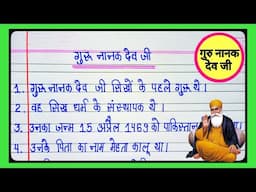 गुरु नानक देव जी
गुरु नानक
देव जी
1. गुरु नानक देव जी सिखों के पहले गुरु थे।
2. वह सिख धर्म के संस्थापक थे।
3. उनका जन्म 15 अप्रैल 1469 को पाकिस्तान
4. उनके पिता का नाम मेहता कालू था।